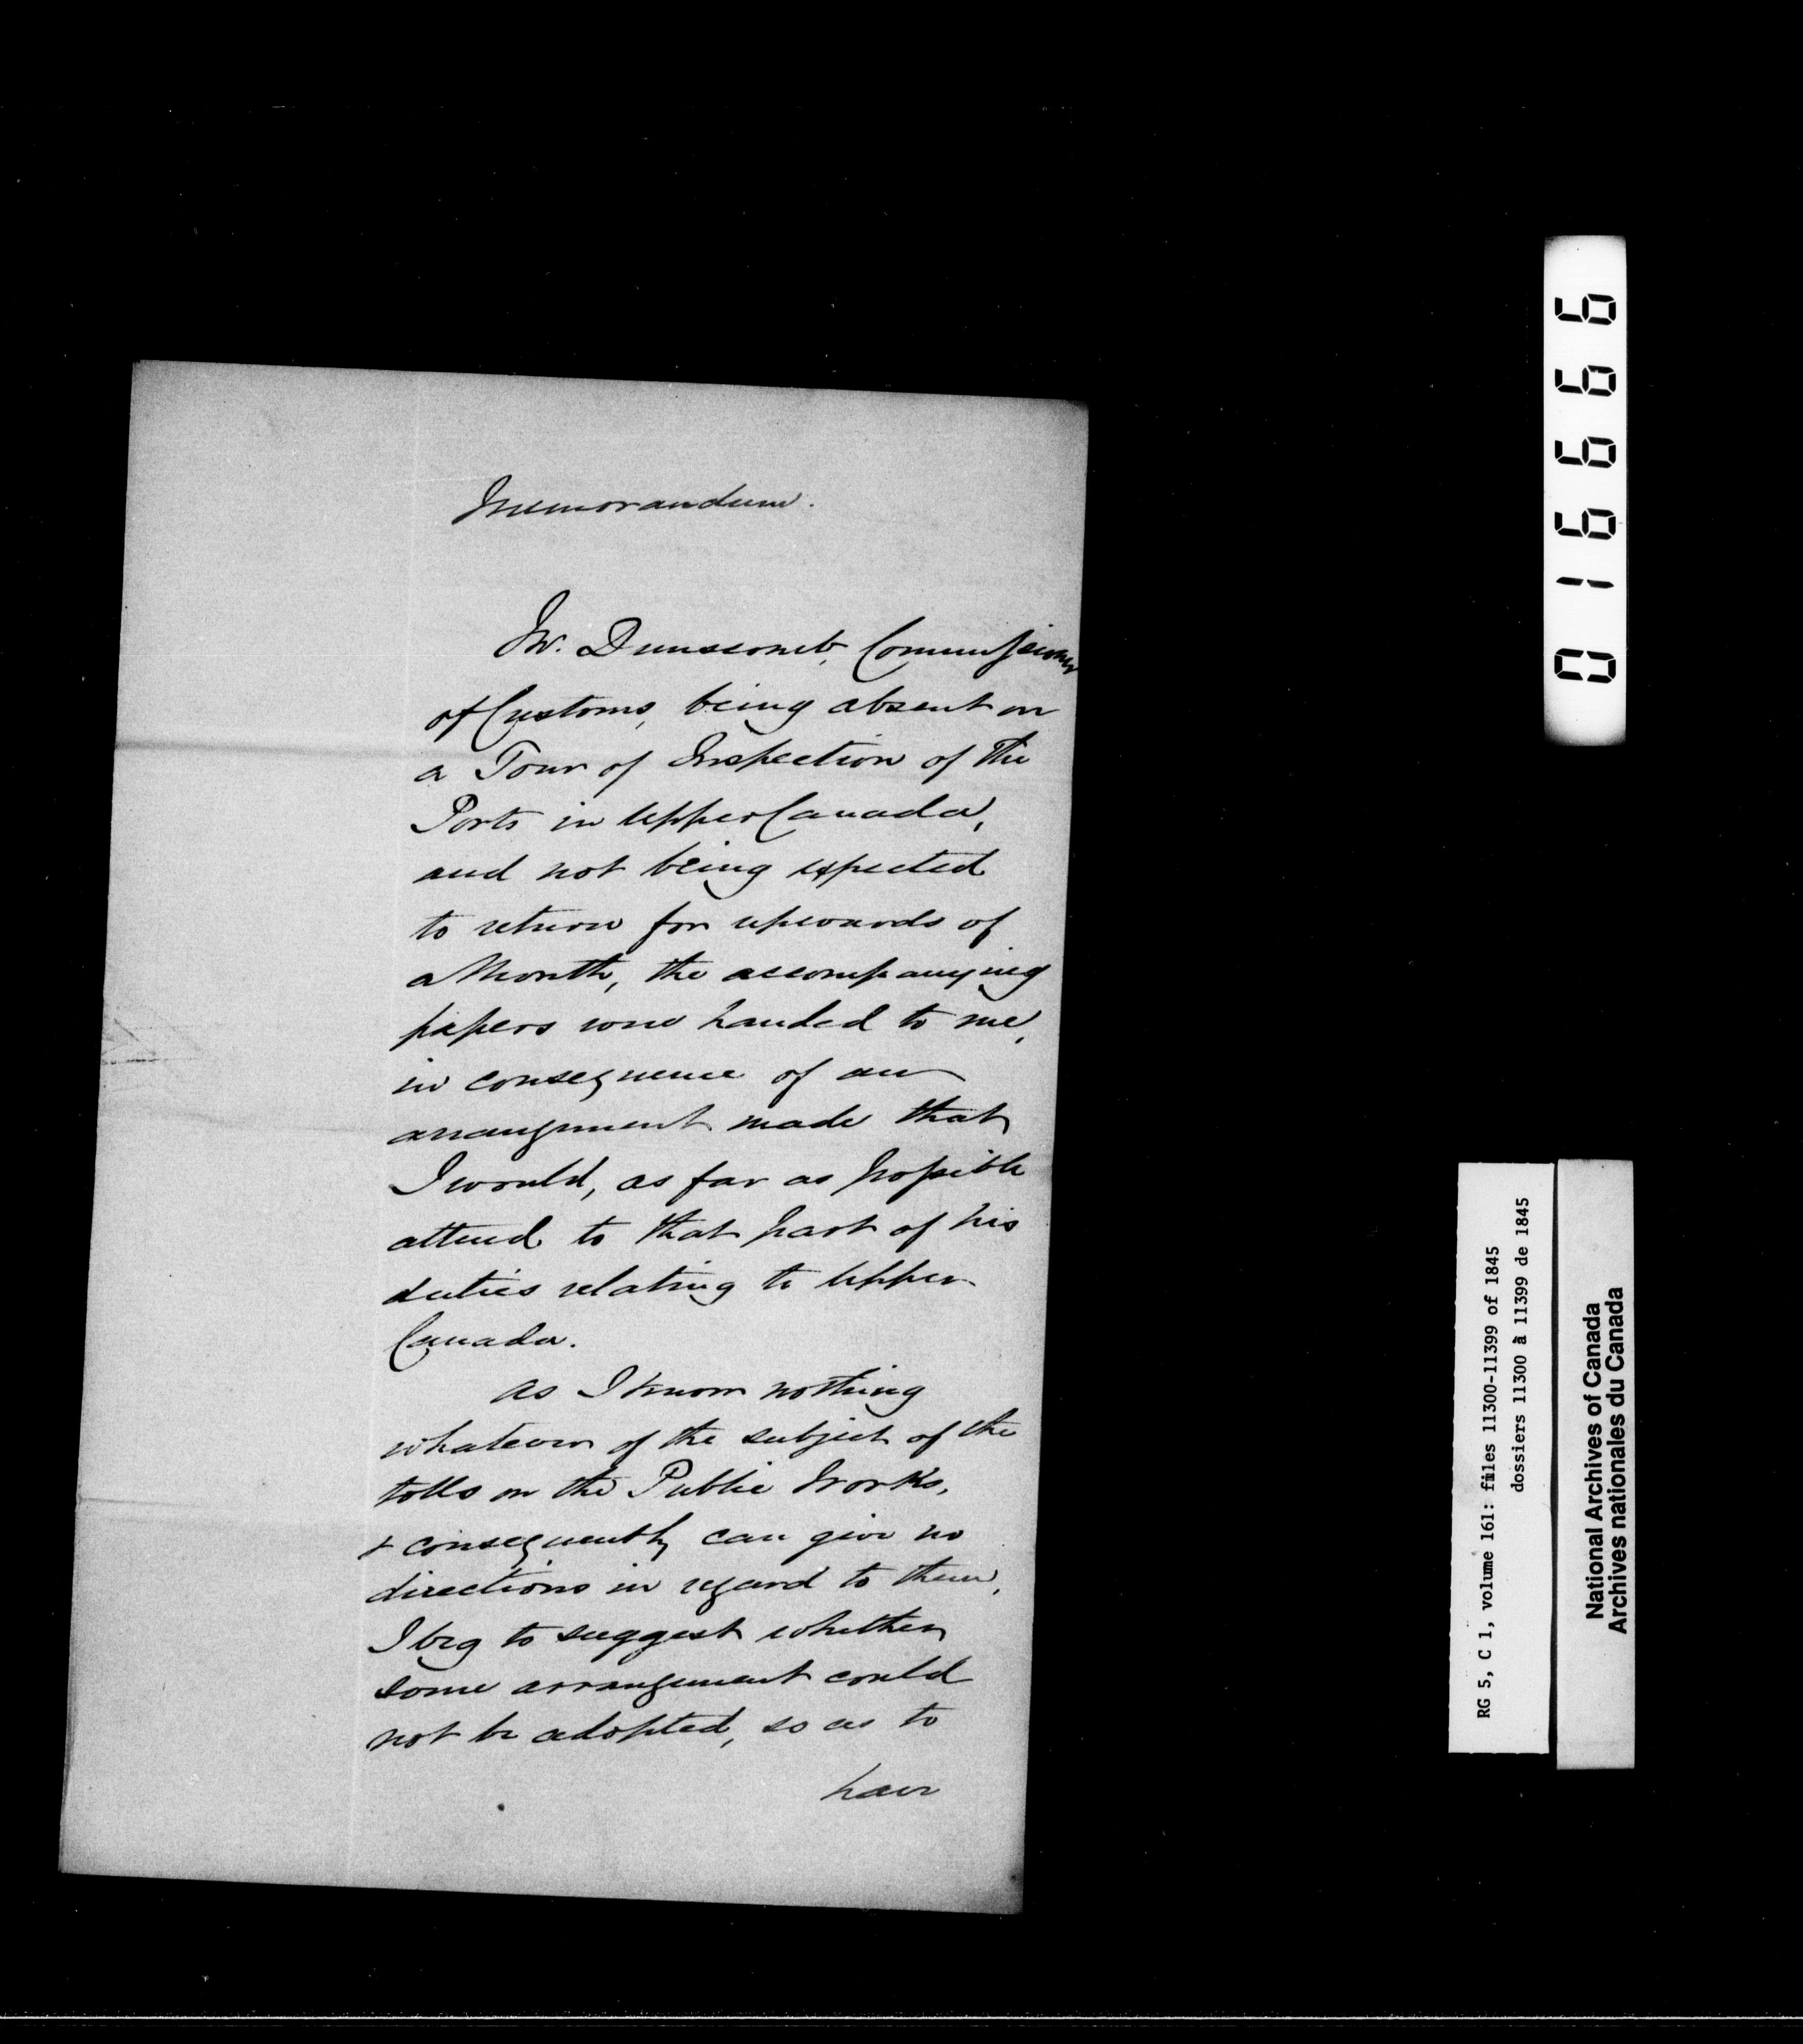 Memorandum.
Mr. Dunscomb, Commissioner
of Customs, being absent on
a Tour of Inspection of the
Ports in Upper Canada,
and not being expected
to return for upwards of
a Month, the accompanying
papers were handed to me,
in consequence of an
arrangement made that
I would, as far as possible
attend to that part of his
duties relating to Upper
Canada.
As I know nothing
whatever of the subject of the
tolls on the Public Works,
& consequently can give no
directions in regard to them,
I beg to suggest whether
some arrangement could
not be adopted, so as to
have
016666
RG 5, C 1, volume 161: files 11300-11399 of 1845
dossiers 11300 à 11399 de 1845
National Archives of Canada
Archives nationales du Canada